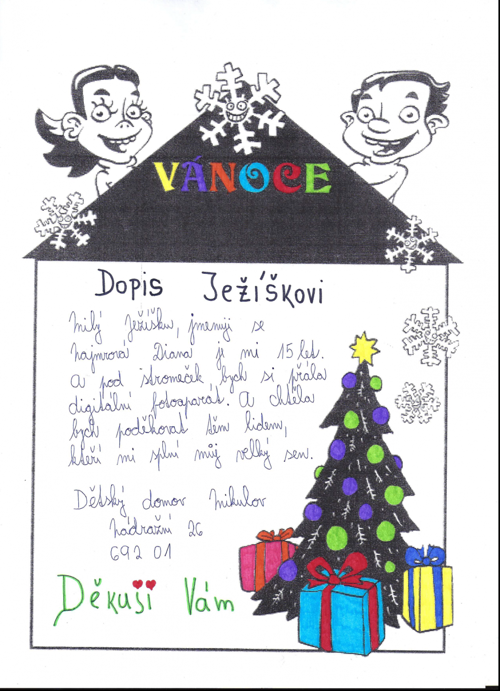 VÁNOCE
Dopis Ježíškovi
Milý Ježíšku, jmenuji se
Najmrová Diana je mi 15 let.
A pod stromeček bych si přála
digitální fotoaparát. A chtěla
bych poděkovat těm lidem,
kteří mi splní můj velký sen.
Dětský domov Mikulov
Nádražní 26
692 01
Děkuji Vám